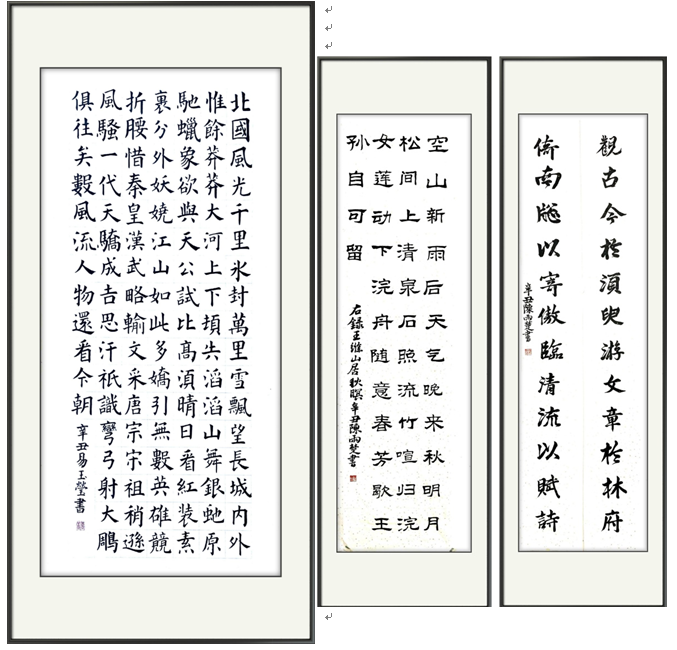 北國風光千里氷封萬里雪飄望長城内外
惟餘莽莽大河上下頃失滔滔山舞銀虵原
馳蠟象欲與天公試比高須晴日看紅装素
裹分外妖嬈江山如此多嬌引無數英雄競
折腰惜秦皇漢武略輸文采唐宗宋祖稍遜
風騷一代天驕成吉思汗祇識彎弓射大鵰
俱往矣數風流人物還看今朝
辛丑易玉瑩書
空山新雨后天气晚来秋明月
松间上清泉石照流竹喧归浣
女莲动下浣舟随意春芳歇王
孙自可留
右録王維山居秋暝辛丑陳雨楚書
觀古今於須臾游文章於林府
倚南牕以寄傲臨清流以賦詩
辛丑陳雨楚書